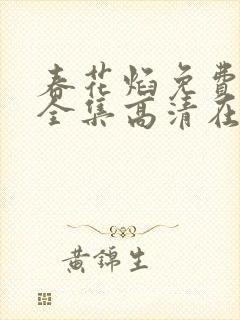 春花焰免費
全集高清在
黃錦生